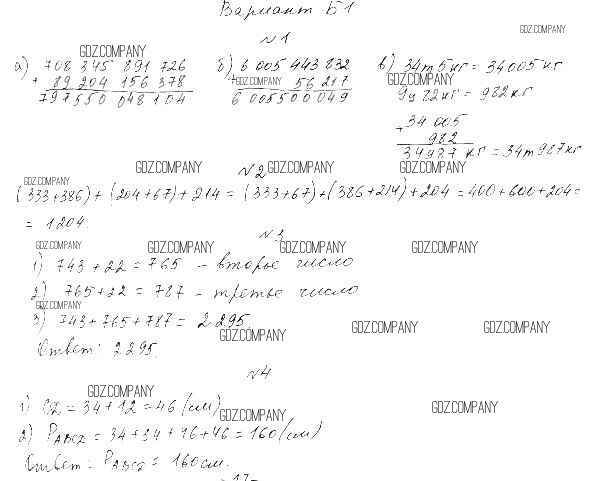 Вариант Б1
GDZ.COMPANY
№1
GDZ.COMPANY
а) 708 345 891 726
+ 89 204 156 378
797550 048 104
б) 6 005 443 832
+ GDZ.COMPANY 56 217
6 005500 049
в) 34т5кг = 34005кг
GDZ.COMPANY
9ц 82кг = 982кг
+ 34 005
982
34987 кг = 34т987кг
GDZ.COMPANY GDZ.COMPANY GDZ.COMPANY
№2
GDZ.COMPANY
(333+386) + (204+67)+214 = (333+67)+(386+214)+204 = 400+600+204=
= 1204.
№3
GDZ.COMPANY GDZ.COMPANY GDZ.COMPANY GDZ.COMPANY
1) 743 +22 = 765 – второе число
2) 765+22 = 787 – третье число
GDZ.COMPANY
3) 743+765+787 = 2295.
GDZ.COMPANY GDZ.COMPANY GDZ.COMPANY
Ответ: 2295.
№4
GDZ.COMPANY
1) = 34+12 =46 (см)
GDZ.COMPANY GDZ.COMPANY
2) = 34+34+46+46=160(см)
Ответ: = 160см.